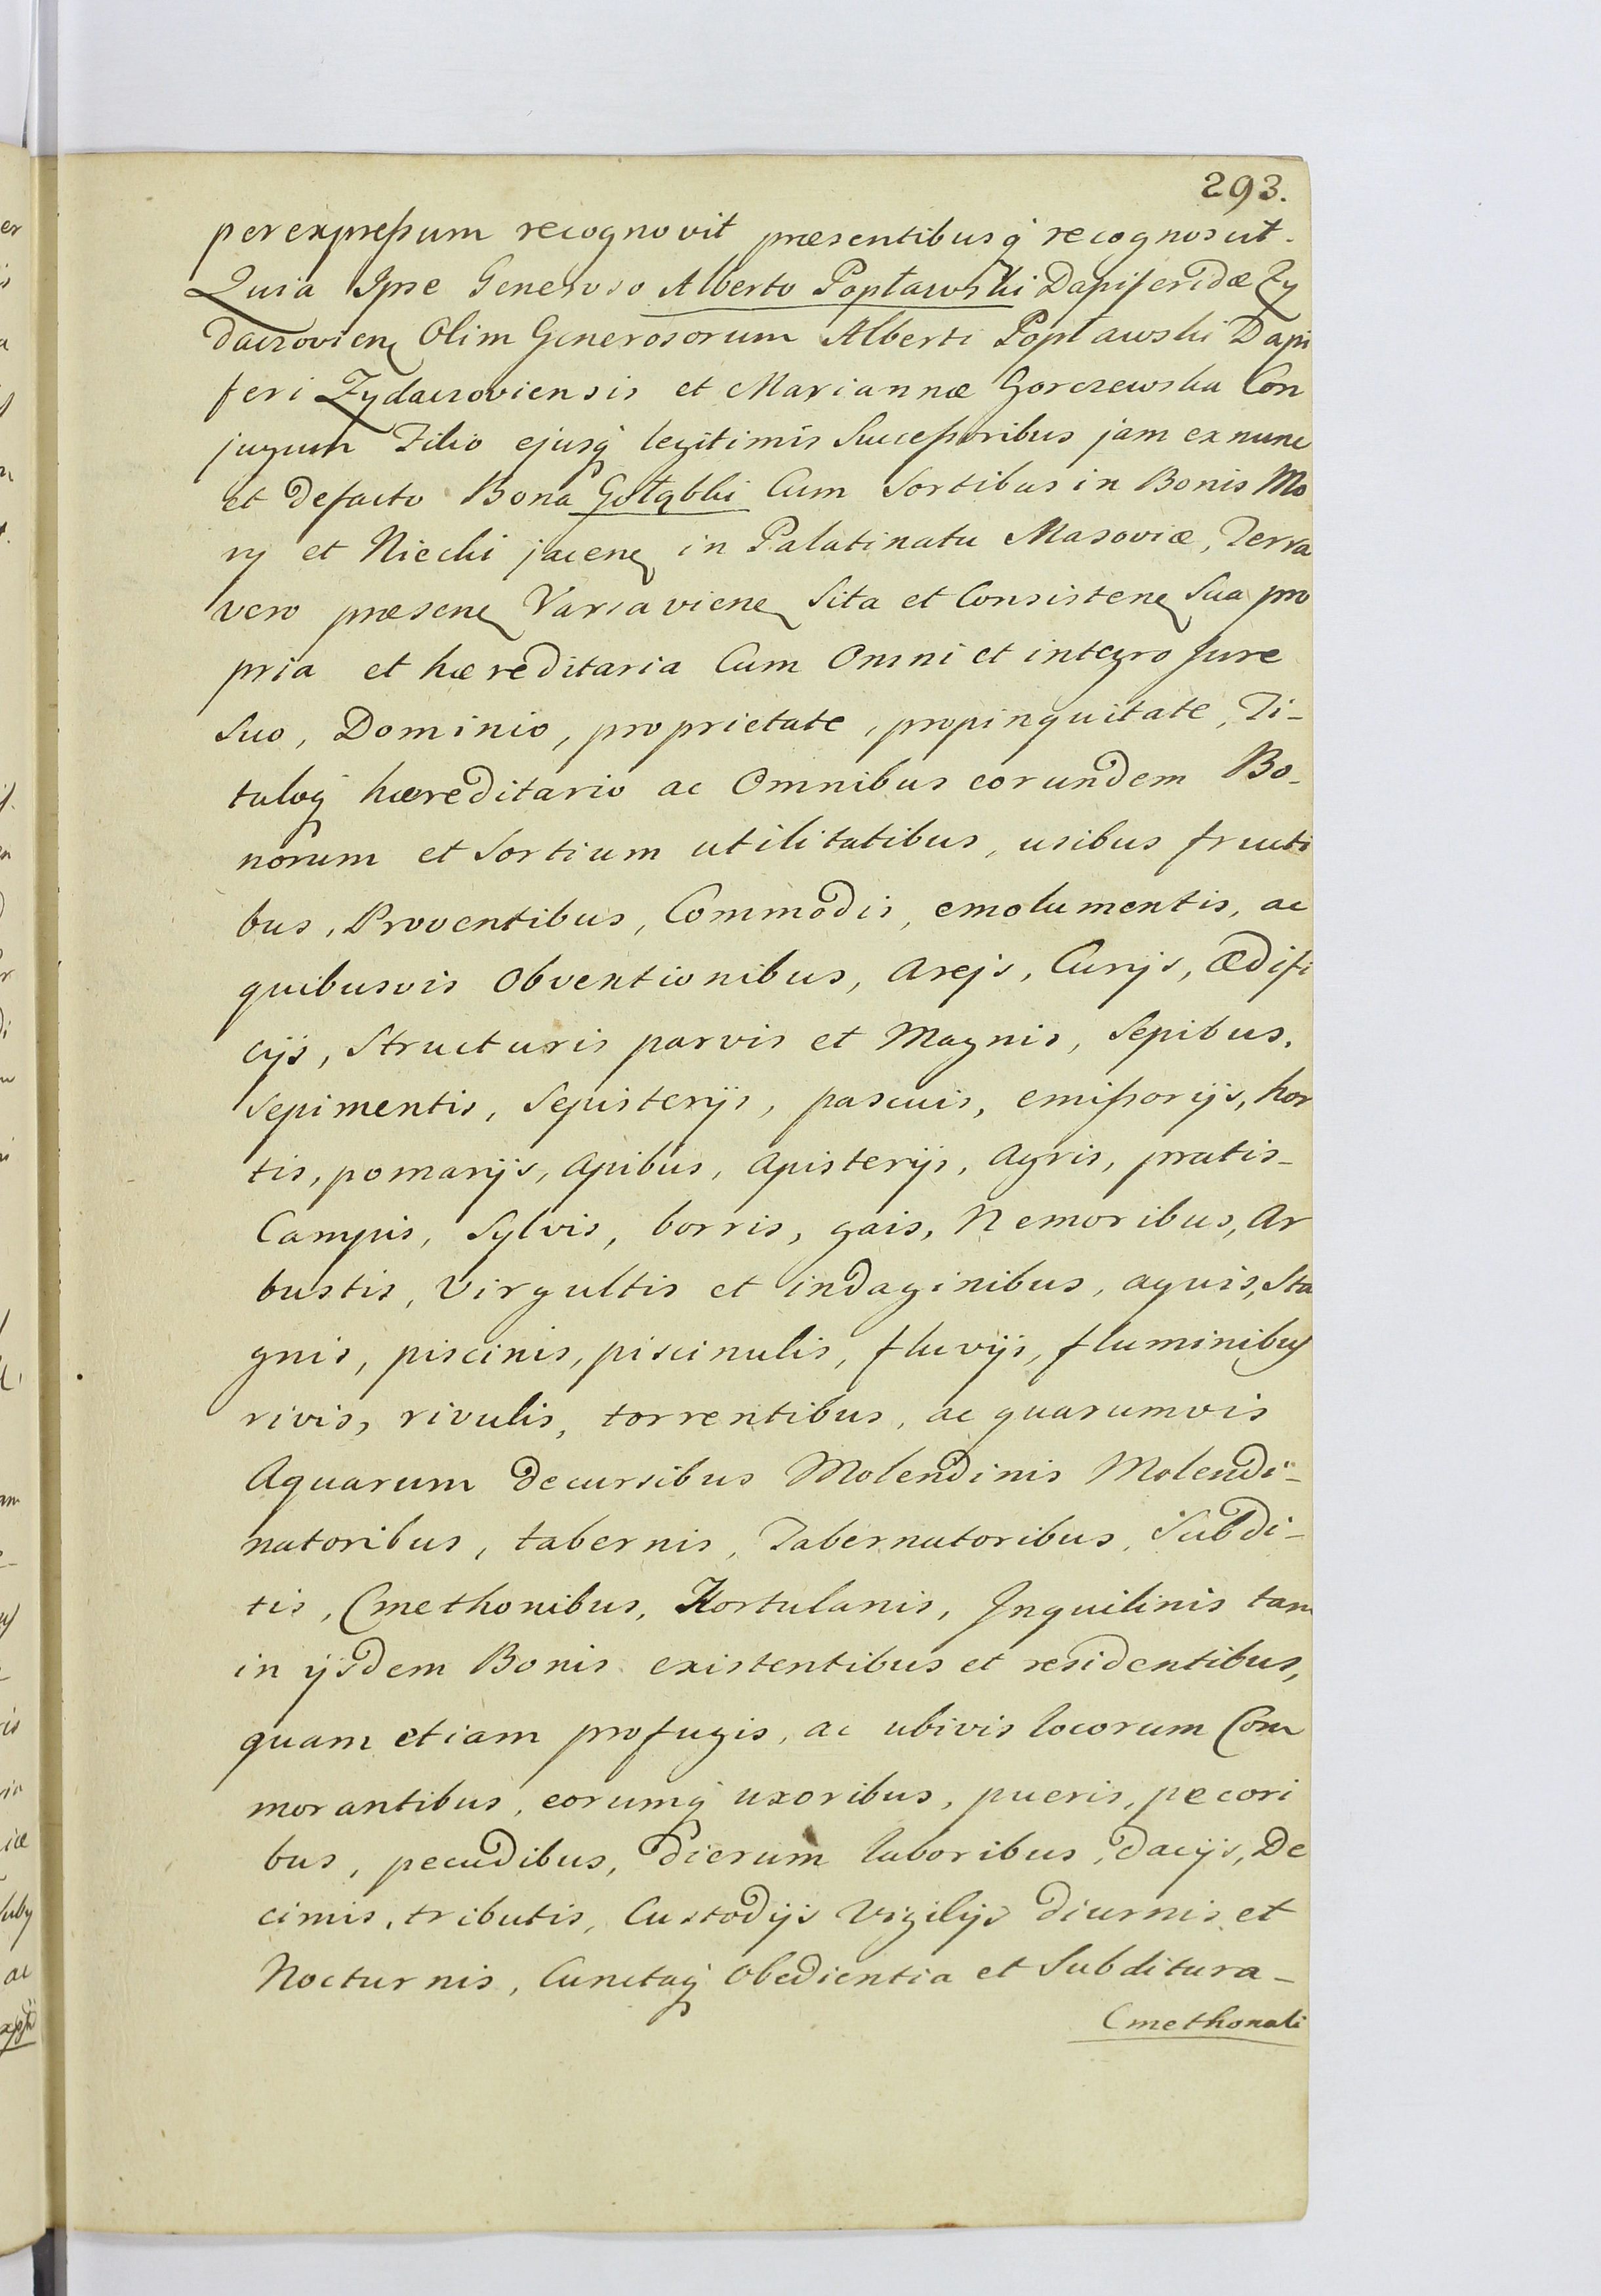 293.
per expressum recognovit præsentibusq́ recognoscit.
Quia Ipse Generoso Alberto Popławski Dapiferidæ Zy
daczovien Olim Generosorum Alberti Popławski Dapi
feri Zydaczoviensis et Mariannæ Gorczewska Con
jugum Filio ejusq́ legitimis Successoribus jam ex nunc
et defacto Bona Gołąbki Cum Sortibus in Bonis Mo
ry et Niecki jacen in Palatinatu Masoviæ, Terra
vero præsen Varsavien Sita et Consisten Sua pro
pria et hæreditaria Cum Omni et integro Jure
Suo, Dominio, proprietate, propinquitate, Ti-
tuloq́ hæreditario ac Omnibus eorundem Bo-
norum et Sortium utilitatibus, usibus fructi
bus, Proventibus, Commodis, emolumentis, ac
quibusvis Obventionibus, Arejs, Curijs, Ædifi
cijs, Structuris parvis et Magnis, Sepibus,
Sepimentis, Sepisterijs, pascuis, emissorijs, hor
tis, pomarijs, Apibus, Apisterijs, Agris, pratis-
Campis, Sylvis, borris, gais, Nemoribus, Ar
bustis, Virgultis et indaginibus, aquis, Sta
gnis, piscinis, piscinulis, fluvijs, fluminibus
rivis, rivulis, torrentibus, ac quarumvis
Aquarum decursibus Molendinis Molendi-
natoribus, tabernis, Tabernatoribus, Subdi-
tis, Cmethonibus, Hortulanis, Inquilinis tam
in ijsdem Bonis existentibus et residentibus,
quam etiam profugis, ac ubivis locorum Com
morantibus, eorumq́ uxoribus, pueris, pecori
bus, pecudibus, dierum laboribus, dacijs, De
cimis, tributis, Custodijs Vigilijs diurnis et
Nocturnis, Cunctaq́ Obedientia et Subditura-
Cmethonali